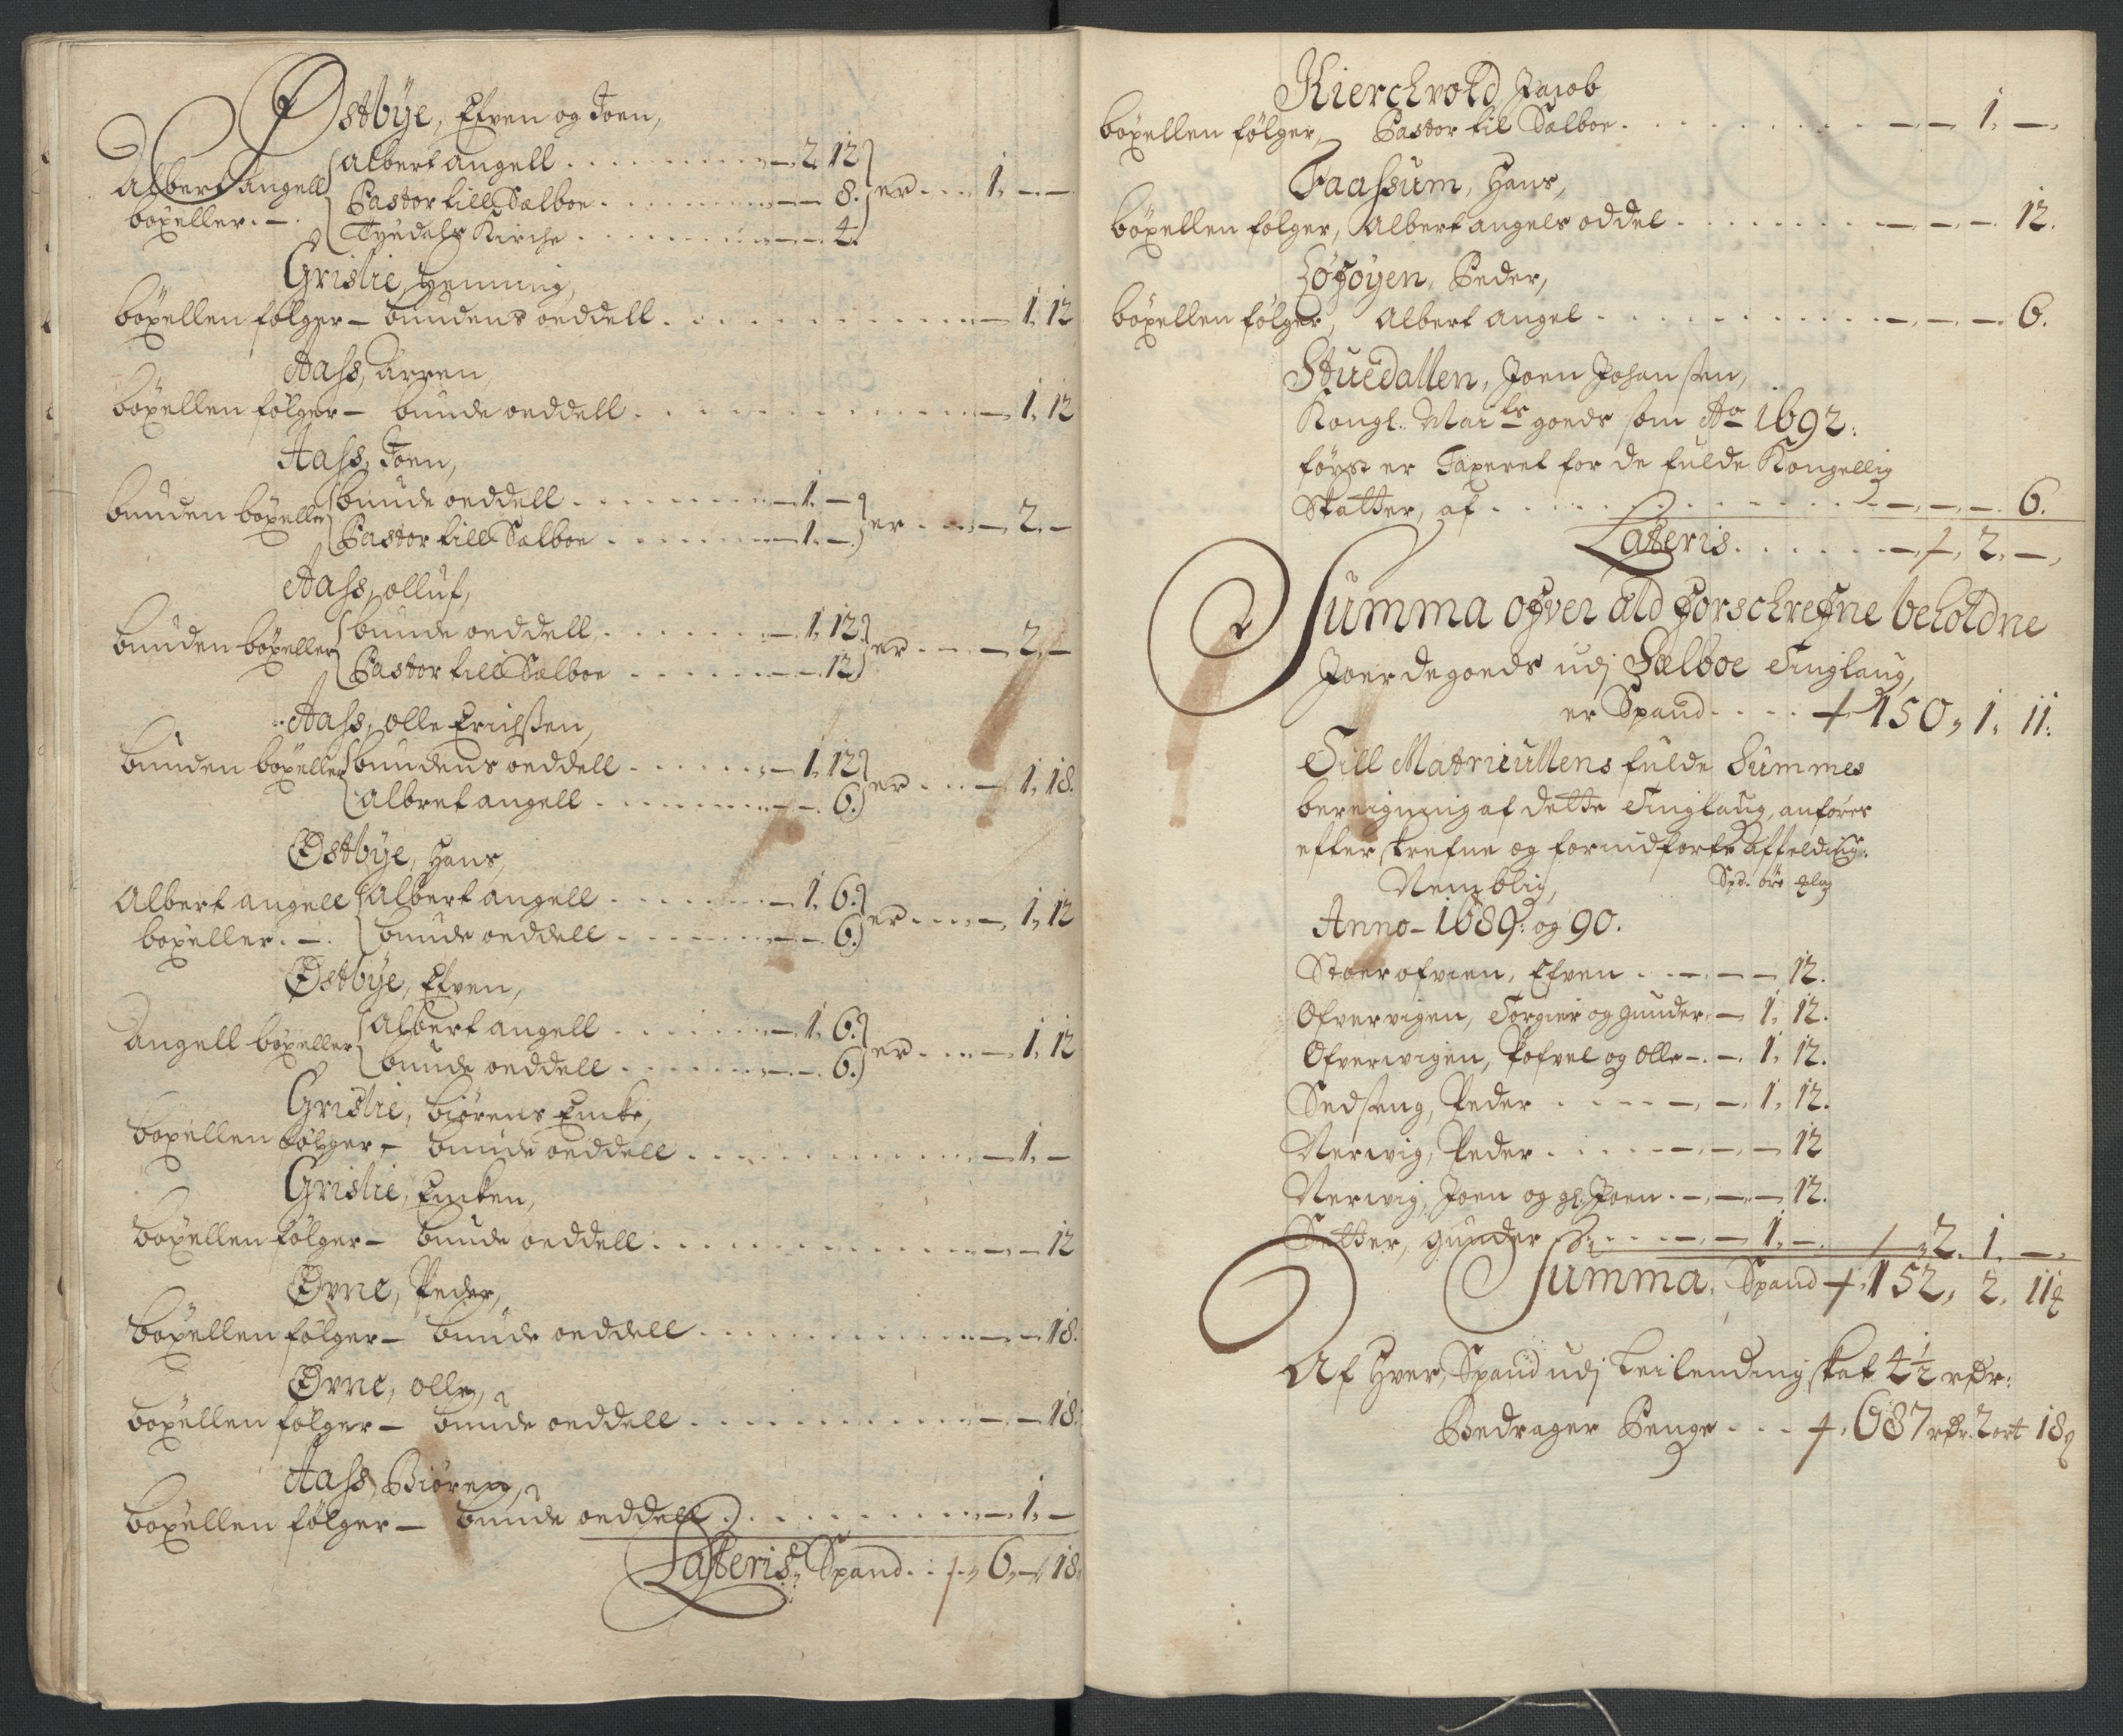 Østbÿe, Efven og Joen,
Albert Angell {Albert angell . . . . . . . . — 2 12}
Pastor till Sælboe . . . . . . . — 8. } er . . . 1. — —
boxeller. —. Tÿedahls Kirche . . . . . . . — 4.
Gristie, Henning,
böxellen følger — bundens oeddell . . . . . . . . . . — 1. 12
Aass, Arren,
böxellen følger — bunde oeddell . . . . . . . . . . — 1. 12
Aass, Joen,
bunden böxeller {bunde oeddell . . . . . . . — 1. —}
{Pastor till Sælboe . . . . . . — 1. —.} er . . . — 2. —
Aass, olluf,
bunden böxeller {bunde oeddell . . . . . . — 1. 12}
{Pastor till Sælboe . . . . . . — 12} er . . . — 2. —
Aass, olle Erichssen,
bunden böxeller {bundens oeddell . . . . . . — 1. 12}
{Albret angell . . . . . . . — 6.} er . . . — 1. 18.
Østbÿe, Hans,
Albert angell {Albert angell . . . . . . . — 1. 6.}
boxeller. —. {bunde oeddell . . . . . . — 6.} er . . . — 1. 12
Østbÿe, Efven,
Angell böxeller {Albert angell . . . . . . — 1. 6.}
{bunde oeddell . . . . . . — 6.} er . . . — 1. 12
Gristie, biörens Encke,
böxellen følger — bunde oeddell . . . . . . . . . . — 1. —
Gristie, Encken,
böxellen følger — bunde oeddell . . . . . . . . . . — — 12
Øvne, Peder,
böxellen følger — bunde oeddell . . . . . . . . . . — — 18.
Øvne, olle,
böxellen følger — bunde oeddell . . . . . . . . . . — — 18.
Aass, Biören,
boxellen følger — bunde oeddell . . . . . . . . . . — 1. —
Lateris, Spand . . . 6. — 18.
Kierchvold Jacob
böxellen følger, Pastor til Sælboe . . . . . . . . . — — 1. —.
Faassum, Hans,
böxellen følger, Albert angels oddel . . . . . . . . — — — 12.
Løføyen, Peder,
böxellen følger, Albert angel . . . . . . . . . — — — 6.
Stuedallen, Joen Johanssen,
Kongl. Maitz goeds som Ao 1692:
først er Taxeret for de fulde Kongellig
Skatter, af . . . . . . . . . . . — — — 6.
Lateris . . . . . . — 2. —,
Summa ofver ald forschrefne beholdne
Joerdegoeds udj Sælboe Tinglaug,
er Spand . . . . 150, 1. 11.
Till Matricullens fulde Summes
bereigning af dette Tinglaug, anføres
efter skrefne og forindforte affelding.
Nemblig, Spd. øre
Anno — 1689: og 90.
Stoerofvien, Efven . . — — — 12.
Ofvervigen, Torgier og gunder. — 1. 12.
Ofverwigen, Pofvel og olle — . — 1. 12.
Sedseng, Peder . . . . — — 1. 12.
Nerwig, Peder . . . . — — — 12
Nerwig, Joen og gl. Joen . — — — 12.
Setter, gunder . . . . . — — 1. —. 2. 1. —.
Summa, Spand 152, 2. 11
Af Hver, Spand udj Leilending skat 4½ rdr:
Bedrager Penge . . . 687 rdr. 2 ort 18